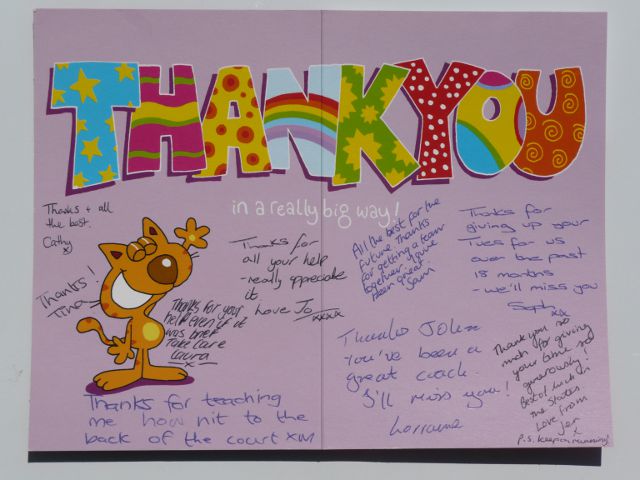 THANKYOU
in a really big way!
Thanks + all
the best.
Cathy
x
Thanks!
Tina
Thanks for
all your help
- really appreciate
it
Love Jo xxxx
Thanks for your
help even if it
was brief
Take Care
Laura
x
Thanks for teaching
me how nit to the
back of the court XM
All the best for the
future. Thanks
for getting a team
together. You've
been great
Sam
Thanks for
giving up your
Tues for us
over the past
18 months
- we'll miss you
Steph
xx
Thanks John
You've been a
great coach.
I'll miss you!
Lorraine
Thank you so
much for giving
your time so
generously!
Best of luck in
the States
Love from
Jen
x
P.S. Keep on running!